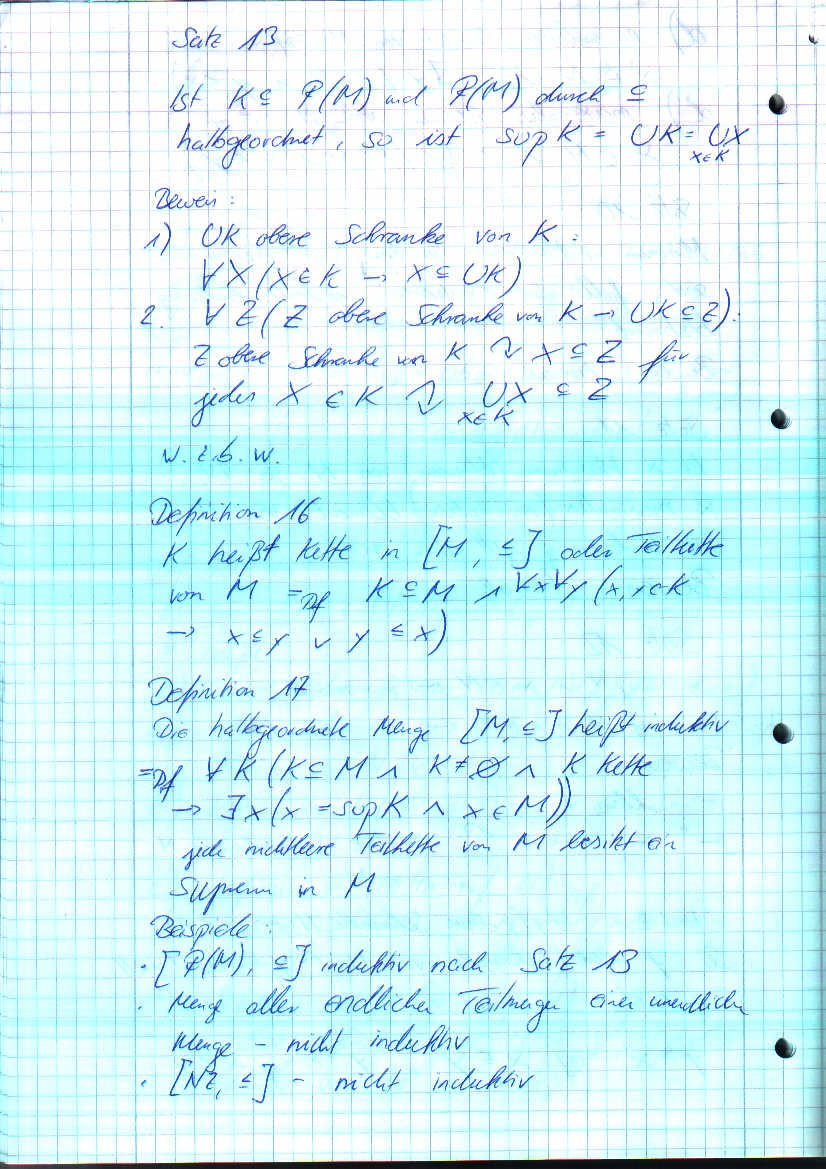 Satz 13
Ist K ⊆ P(M) und P(M) durch ⊆
halbgeordnet, so ist sup K = ∪K = ∪X
X∈K
Beweis:
1) ∪K obere Schranke von K:
∀X(X∈K → X ⊆ ∪K)
2. ∀Z(Z obere Schranke von K → ∪K⊆Z):
Z obere Schranke von K ↷ X ⊆ Z für
jedes X ∈ K ↷ ∪X ⊆ Z
X∈K
w.z.b.w.
Definition 16
K heißt Kette in [M, ≤] oder Teilkette
von M =Df K⊆M ∧ ∀x∀y(x,y∈K
→ x≤y ∨ y≤x)
Definition 17
Die halbgeordnete Menge [M,≤] heißt induktiv
=Df ∀K(K⊆M ∧ K≠∅ ∧ K Kette
→ ∃x(x = sup K ∧ x∈M))
jede nichtleere Teilkette von M besitzt ein
Supremum in M
Beispiele:
· [P(M), ⊆] induktiv nach Satz 13
· Menge aller endlichen Teilmengen einer unendlichen
Menge - nicht induktiv
· [NZ, ≤] - nicht induktiv